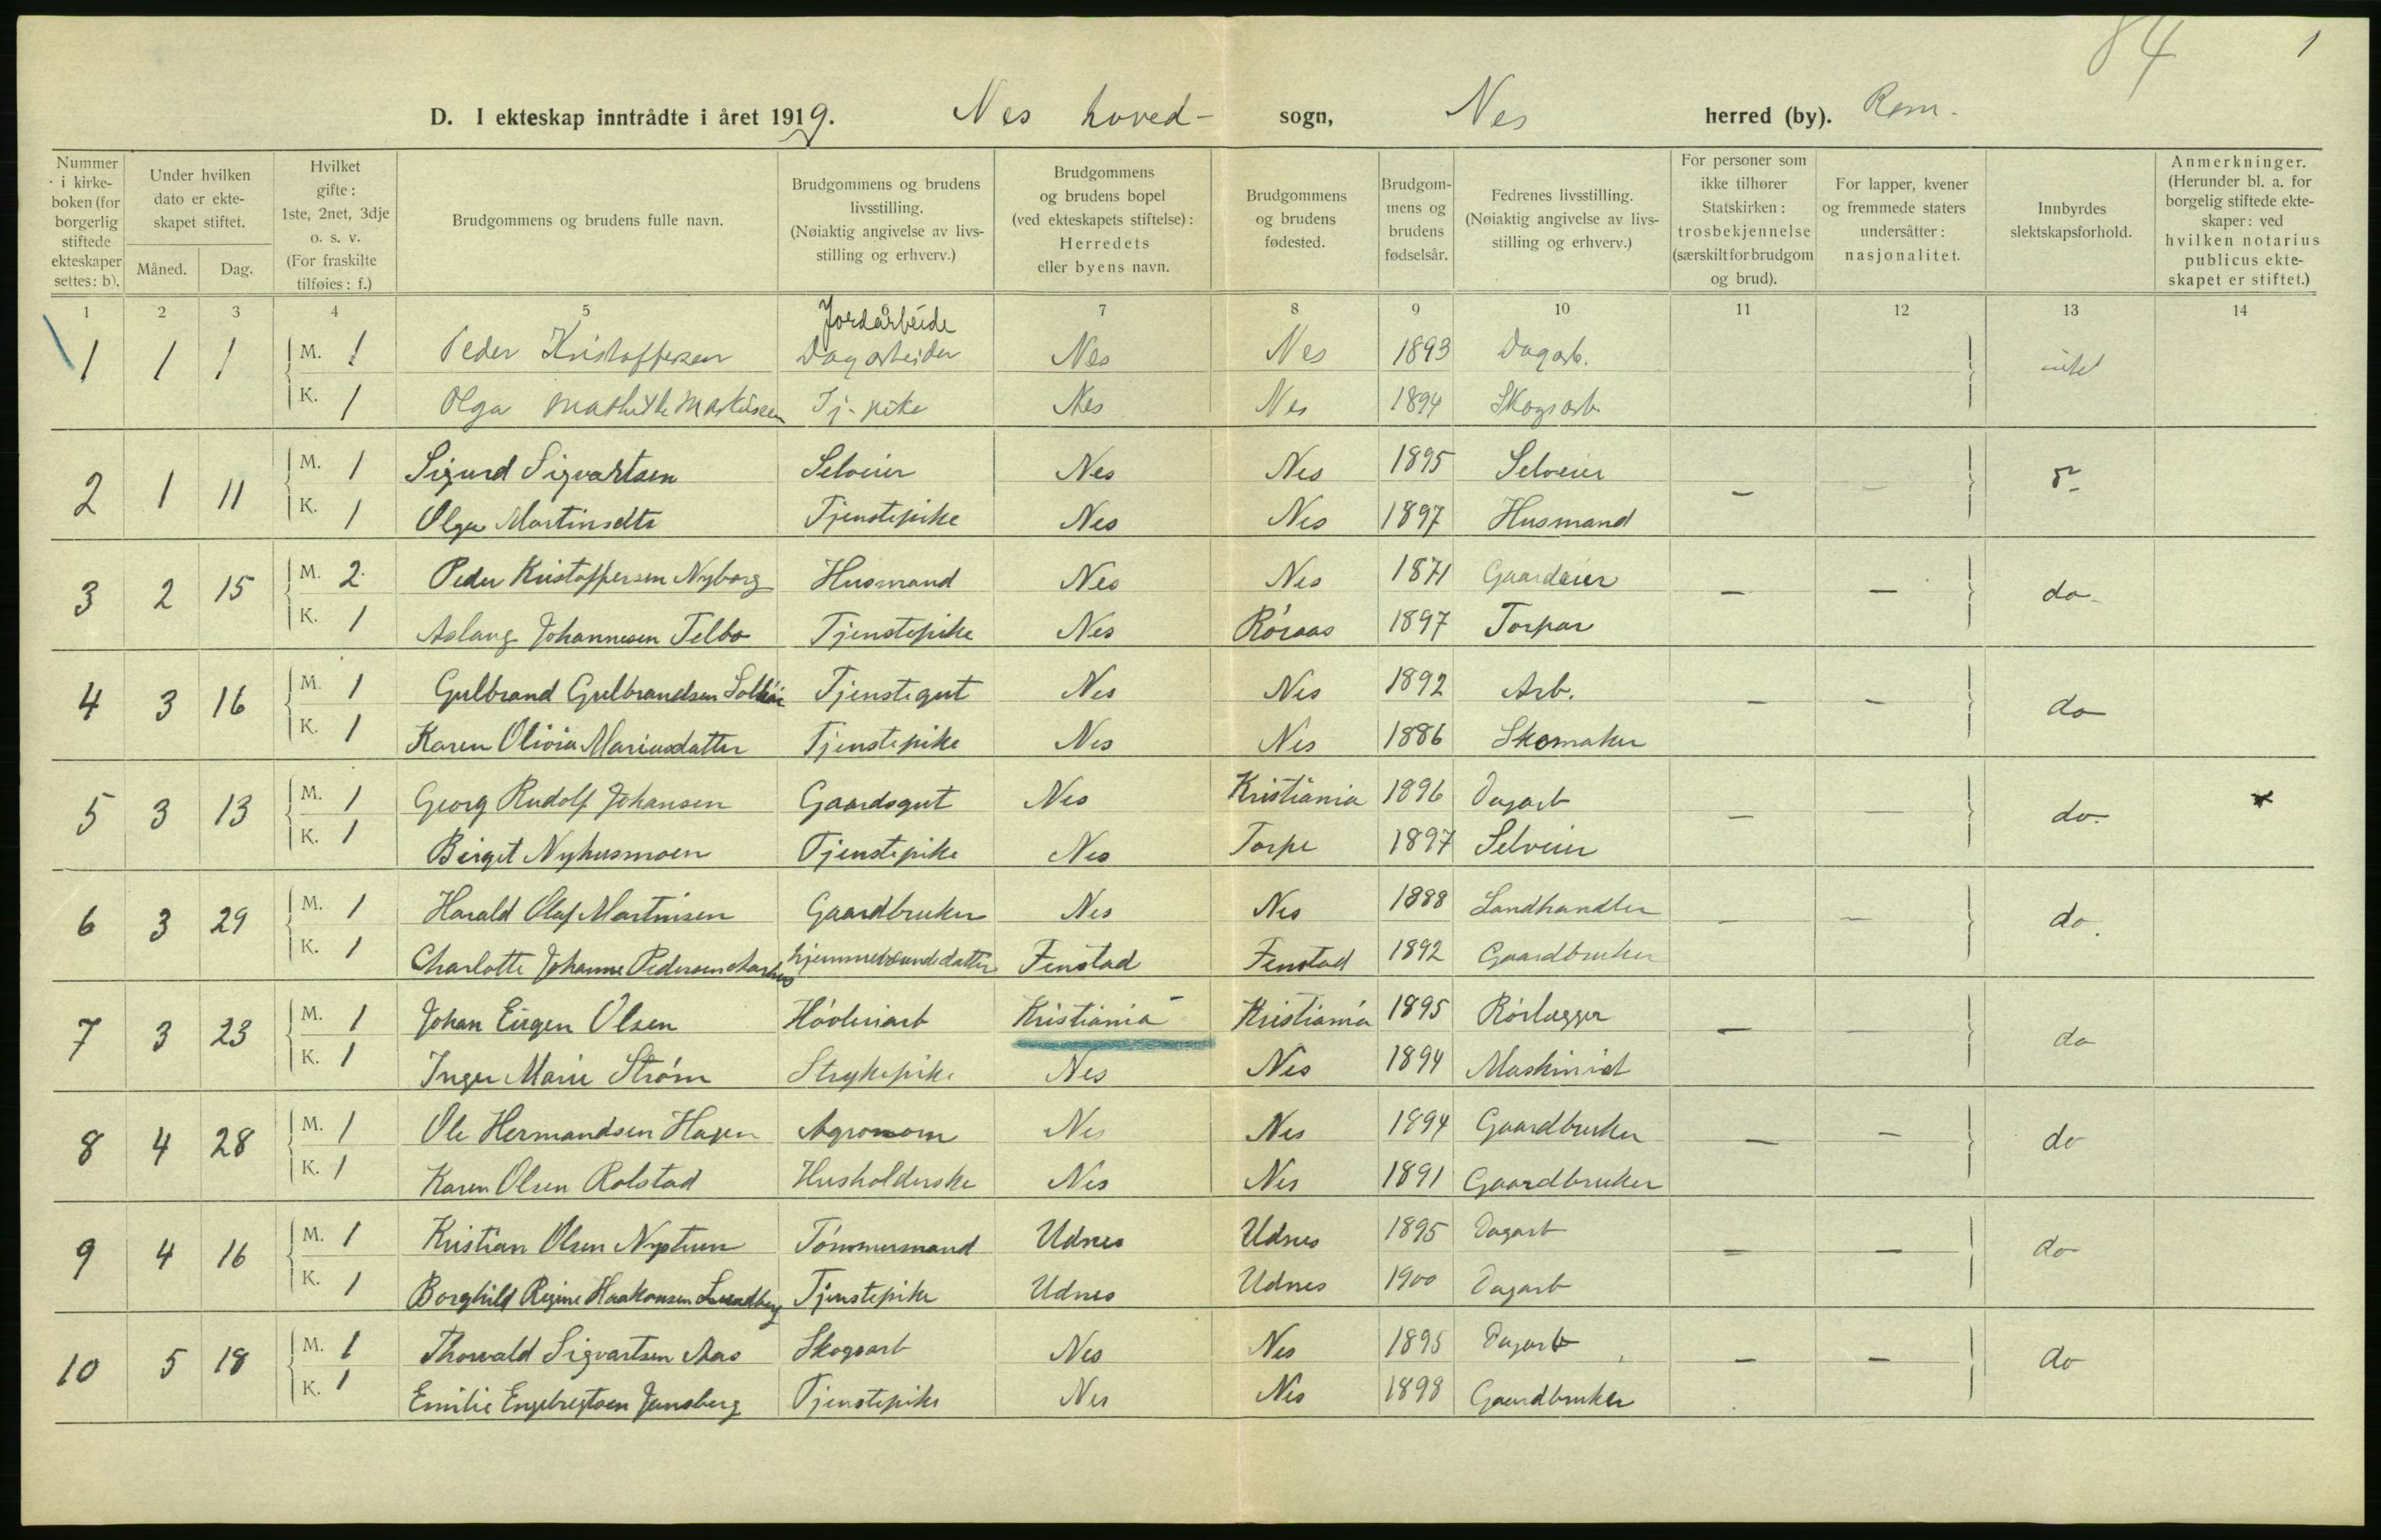 84 1
D. I ekteskap inntrådte i året 1919. Nes hoved- sogn, Nes herred (by). Rom.
Nummer i kirke-boken (for borgerlig stiftede ekteskaper settes: b).
Under hvilken dato er ekte-skapet stiftet.
Måned. Dag.
Hvilket gifte: 1ste, 2net, 3dje o. s. v. (For fraskilte tilføies: f.)
Brudgommens og brudens fulle navn.
Brudgommens og brudens livsstilling. (Nøiaktig angivelse av livs-stilling og erhverv.)
Brudgommens og brudens bopel (ved ekteskapets stiftelse): Herredets eller byens navn.
Brudgommens og brudens fødested.
Brudgom-mens og brudens fødselsår.
Fedrenes livsstilling. (Nøiaktig angivelse av livs-stilling og erhverv.)
For personer som ikke tilhører Statskirken: trosbekjennelse (særskilt for brudgom og brud).
For lapper, kvener og fremmede staters undersåtter: nasjonalitet.
Innbyrdes slektskapsforhold.
Anmerkninger. (Herunder bl. a. for borgelig stiftede ekte-skaper: ved hvilken notarius publicus ekte-skapet er stiftet.)
1 2 3 4 5 6 7 8 9 10 11 12 13 14
Jordarbeide
1 1 1 M. 1 Peder Kristoffersen Dagarbeider Nes Nes 1893 Dagarb. intet
K. 1 Olga Mathilde Martinsen Tj-pike Nes Nes 1894 Skogsarb
2 1 11 M. 1 Sigurd Sigvartsen Selveier Nes Nes 1895 Selveier - -
K. 1 Olga Martinsdtr Tjenstepike Nes Nes 1897 Husmand
3 2 15 M. 2 Peder Kristoffersen Nyborg Husmand Nes Nes 1871 Gaardeier - - do-
K. 1 Aslaug Johannesen Telbo Tjenstepike Nes Röraas 1897 Torpar
4 3 16 M. 1 Gulbrand Gulbrandsen Tjenstegut Nes Nes 1892 Arb. - - do
K. 1 Karen Olivia Mariusdatter Tjenstepike Nes Nes 1886 Skomaker
5 3 13 M. 1 Georg Rudolf Johansen Gaardsgut Nes Kristiania 1896 Dagarb - - do. *
K. 1 Birgit Nyhusmoen Tjenstepike Nes Torpe 1897 Selveier
6 3 29 M. 1 Harald Olaf Martinsen Gaardbruker Nes Nes 1888 Landhandler - - do.
K. 1 Charlotte Johanne Pedersen Aarhus hjemmeværende datter Fenstad Fenstad 1892 Gaardbruker
7 3 23 M. 1 Johan Eugen Olsen Hövleriarb Kristiania Kristiania 1895 Rörlægger - - do
K. 1 Inger Marie Ström Strykepike Nes Nes 1894 Maskinist
8 4 28 M. 1 Ole Hermandsen Hagen Agronom Nes Nes 1894 Gaardbruker - - do
K. 1 Karen Olsen Rolstad Husholderske Nes Nes 1891 Gaardbruker
9 4 16 M. 1 Kristian Olsen Nystuen Tömmermand Udnes Udnes 1895 Dagarb - - do
K. 1 Borghild Regine Haakonsen Lundberg Tjenstepike Udnes Udnes 1900 Dagarb
10 5 18 M. 1 Thorvald Sigvartsen Aas Skogsarb Nes Nes 1895 Dagarb - - do
K. 1 Emilie Engebregtsen Jansberg Tjenstepike Nes Nes 1898 Gaardbruker